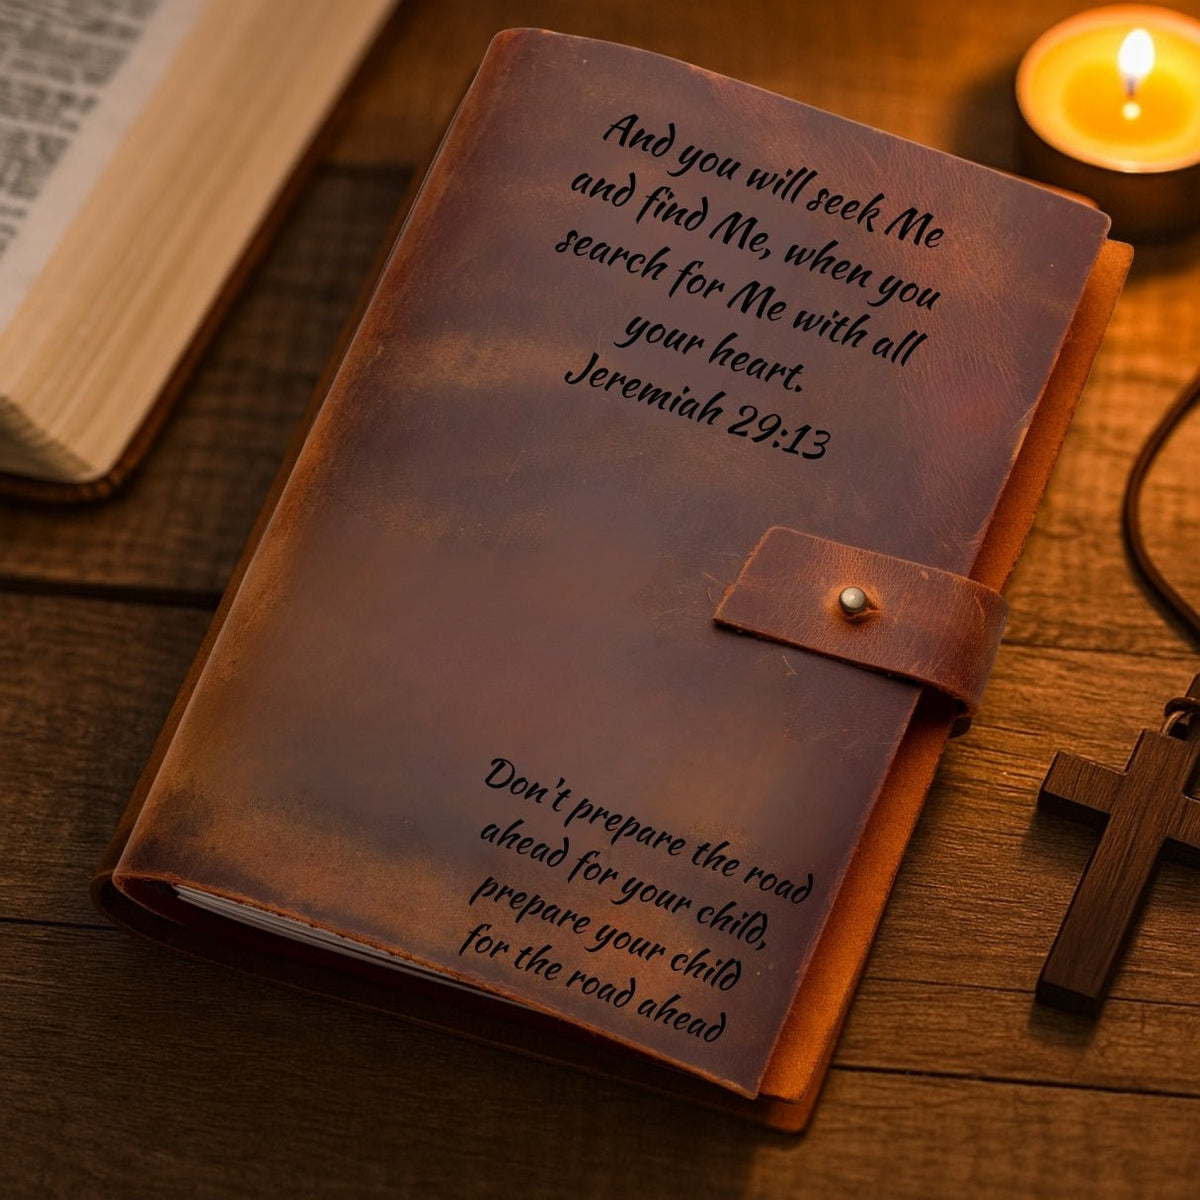 And you will seek Me
and find Me, when you
search for Me with all
your heart.
Jeremiah 29:13
Don't prepare the road
ahead for your child,
prepare your child
for the road ahead